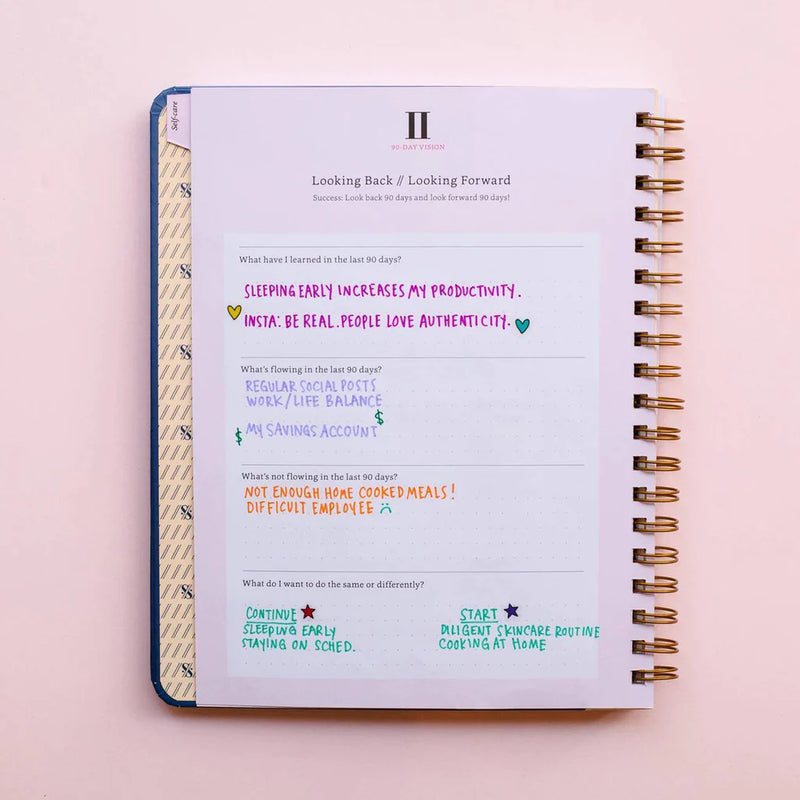 Self-care
II
90-DAY VISION
Looking Back // Looking Forward
Success: Look back 90 days and look forward 90 days!
What have I learned in the last 90 days?
SLEEPING EARLY INCREASES MY PRODUCTIVITY.
INSTA: BE REAL. PEOPLE LOVE AUTHENTICITY.
What's flowing in the last 90 days?
REGULAR SOCIAL POSTS
WORK/LIFE BALANCE
$
$ MY SAVINGS ACCOUNT
What's not flowing in the last 90 days?
NOT ENOUGH HOME COOKED MEALS!
DIFFICULT EMPLOYEE
What do I want to do the same or differently?
CONTINUE
SLEEPING EARLY
STAYING ON SCHED.
START
DILIGENT SKINCARE ROUTINE
COOKING AT HOME